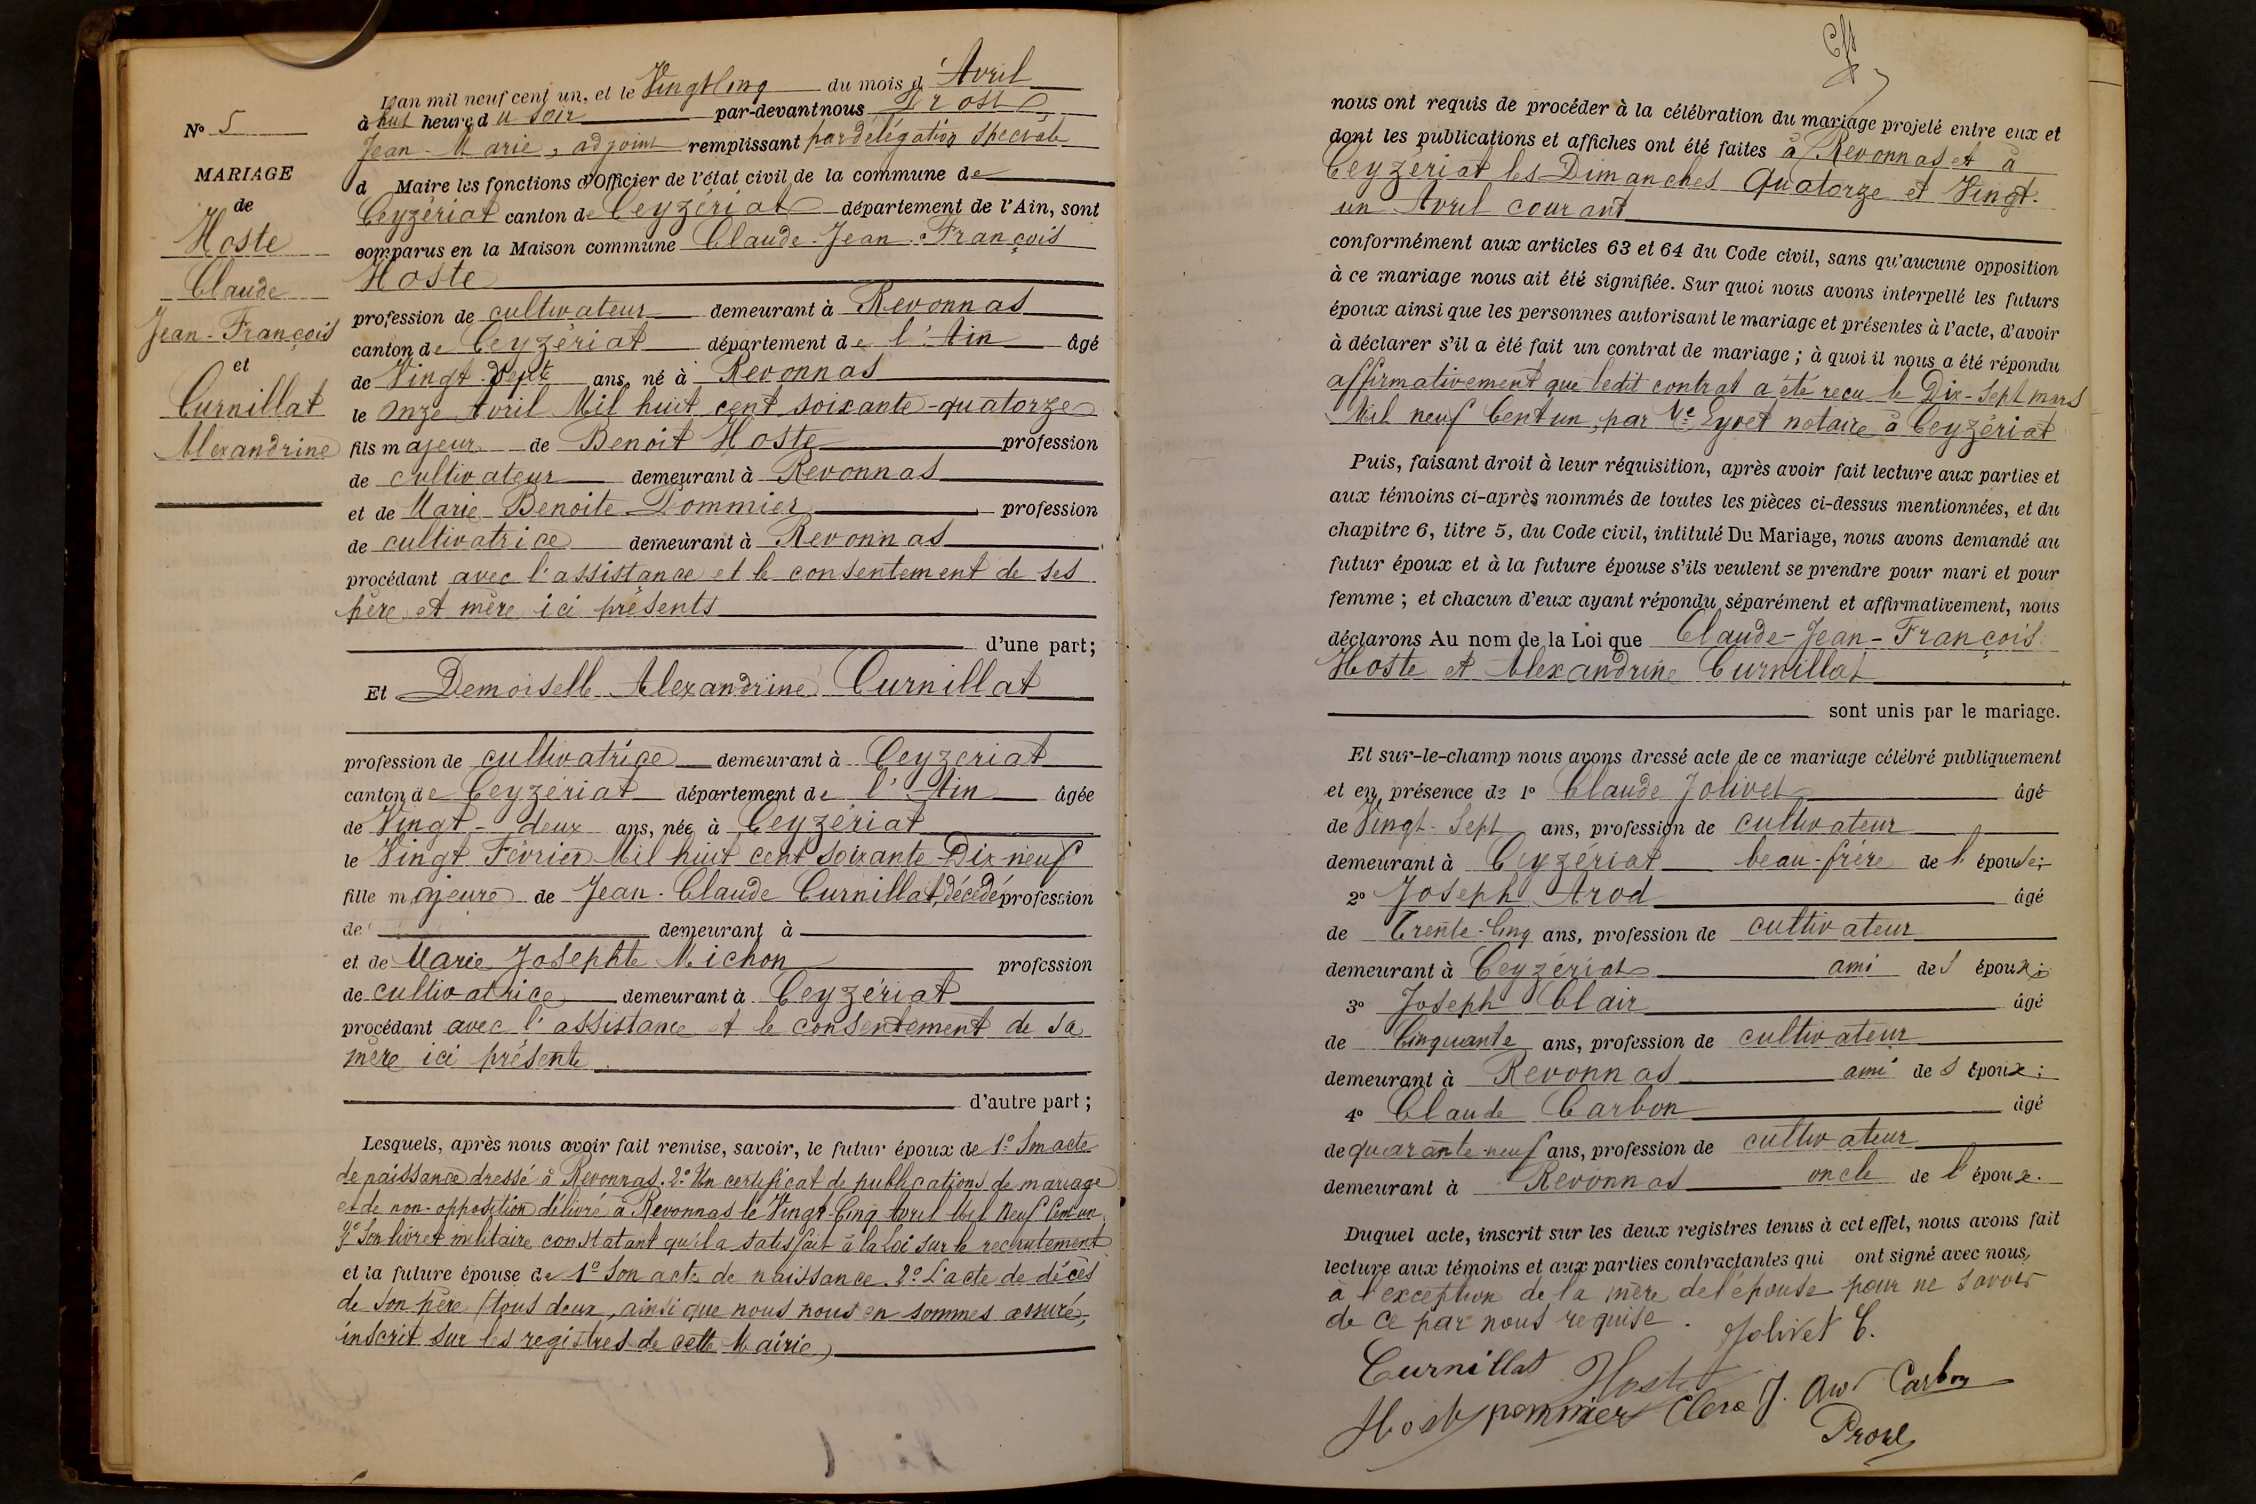 L'an mil neuf cent un, et le Vingt Cinq du mois d'Avril
à huit heure du soir par-devant nous Prost
Jean-Marie, adjoint remplissant par délégation spéciale
d Maire les fonctions d'Officier de l'état civil de la commune de
Ceyzériat canton de Ceyzériat département de l'Ain, sont
comparus en la Maison commune Claude-Jean-François
Hoste
profession de cultivateur demeurant à Revonnas
canton de Ceyzériat département de l'Ain âgé
de Vingt-Sept ans, né à Revonnas
le onze Avril Mil huit cent soixante-quatorze
fils majeur de Benoit Hoste profession
de cultivateur demeurant à Revonnas
et de Marie Benoite Pommier profession
de cultivatrice demeurant à Revonnas
procédant avec l'assistance et le consentement de ses
père et mère ici présents
d'une part;
Et Demoiselle Alexandrine Curnillat
profession de cultivatrice demeurant à Ceyzériat
canton de Ceyzériat département de l'Ain âgée
de Vingt-deux ans, née à Ceyzériat
le Vingt Février Mil huit cent soixante-Dix-neuf
fille majeure de Jean-Claude Curnillat, décédé profession
de demeurant à
et de Marie Josephte Michon profession
de cultivatrice demeurant à Ceyzériat
procédant avec l'assistance et le consentement de sa
mère ici présente
d'autre part;
Lesquels, après nous avoir fait remise, savoir, le futur époux de 1º Son acte
de naissance dressé à Revonnas. 2º Un certificat de publications de mariage
et de non-opposition délivré à Revonnas le Vingt-Cinq Avril Mil Neuf Cent un
3º Son livret militaire constatant qu'il a satisfait à la Loi sur le recrutement
et la future épouse de 1º Son acte de naissance. 2º L'acte de décès
de son père (tous deux, ainsi que nous nous en sommes assuré,
inscrit sur les registres de cette Mairie)
Nº 5
MARIAGE
de
Hoste
Claude
Jean-François
et
Curnillat
Alexandrine
nous ont requis de procéder à la célébration du mariage projeté entre eux et
dont les publications et affiches ont été faites à Revonnas et à
Ceyzériat les Dimanches Quatorze et Vingt-
un Avril courant
conformément aux articles 63 et 64 du Code civil, sans qu'aucune opposition
à ce mariage nous ait été signifiée. Sur quoi nous avons interpellé les futurs
époux ainsi que les personnes autorisant le mariage et présentes à l'acte, d'avoir
à déclarer s'il a été fait un contrat de mariage; à quoi il nous a été répondu
affirmativement que ledit contrat a été reçu le Dix-Sept mars
Mil neuf Cent un, par Me Eyret notaire à Ceyzériat
Puis, faisant droit à leur réquisition, après avoir fait lecture aux parties et
aux témoins ci-après nommés de toutes les pièces ci-dessus mentionnées, et du
chapitre 6, titre 5, du Code civil, intitulé Du Mariage, nous avons demandé au
futur époux et à la future épouse s'ils veulent se prendre pour mari et pour
femme; et chacun d'eux ayant répondu séparément et affirmativement, nous
déclarons Au nom de la Loi que Claude-Jean-François
Hoste et Alexandrine Curnillat
sont unis par le mariage.
Et sur-le-champ nous avons dressé acte de ce mariage célébré publiquement
et en présence de 1º Claude Jolivet âgé
de Vingt-Sept ans, profession de cultivateur
demeurant à Ceyzériat beau-frère de l'épouse;
2º Joseph Arod âgé
de Trente-Cinq ans, profession de cultivateur
demeurant à Ceyzériat ami des époux;
3º Joseph Clair âgé
de Cinquante ans, profession de cultivateur
demeurant à Revonnas ami des époux;
4º Claude Carbon âgé
de quarante-neuf ans, profession de cultivateur
demeurant à Revonnas oncle de l'époux.
Duquel acte, inscrit sur les deux registres tenus à cet effet, nous avons fait
lecture aux témoins et aux parties contractantes qui ont signé avec nous,
à l'exception de la mère de l'épouse pour ne savoir
de ce par nous requise.
Jolivet C.
Curnillat Hoste
Hoste pommier J. Carbon
Prost